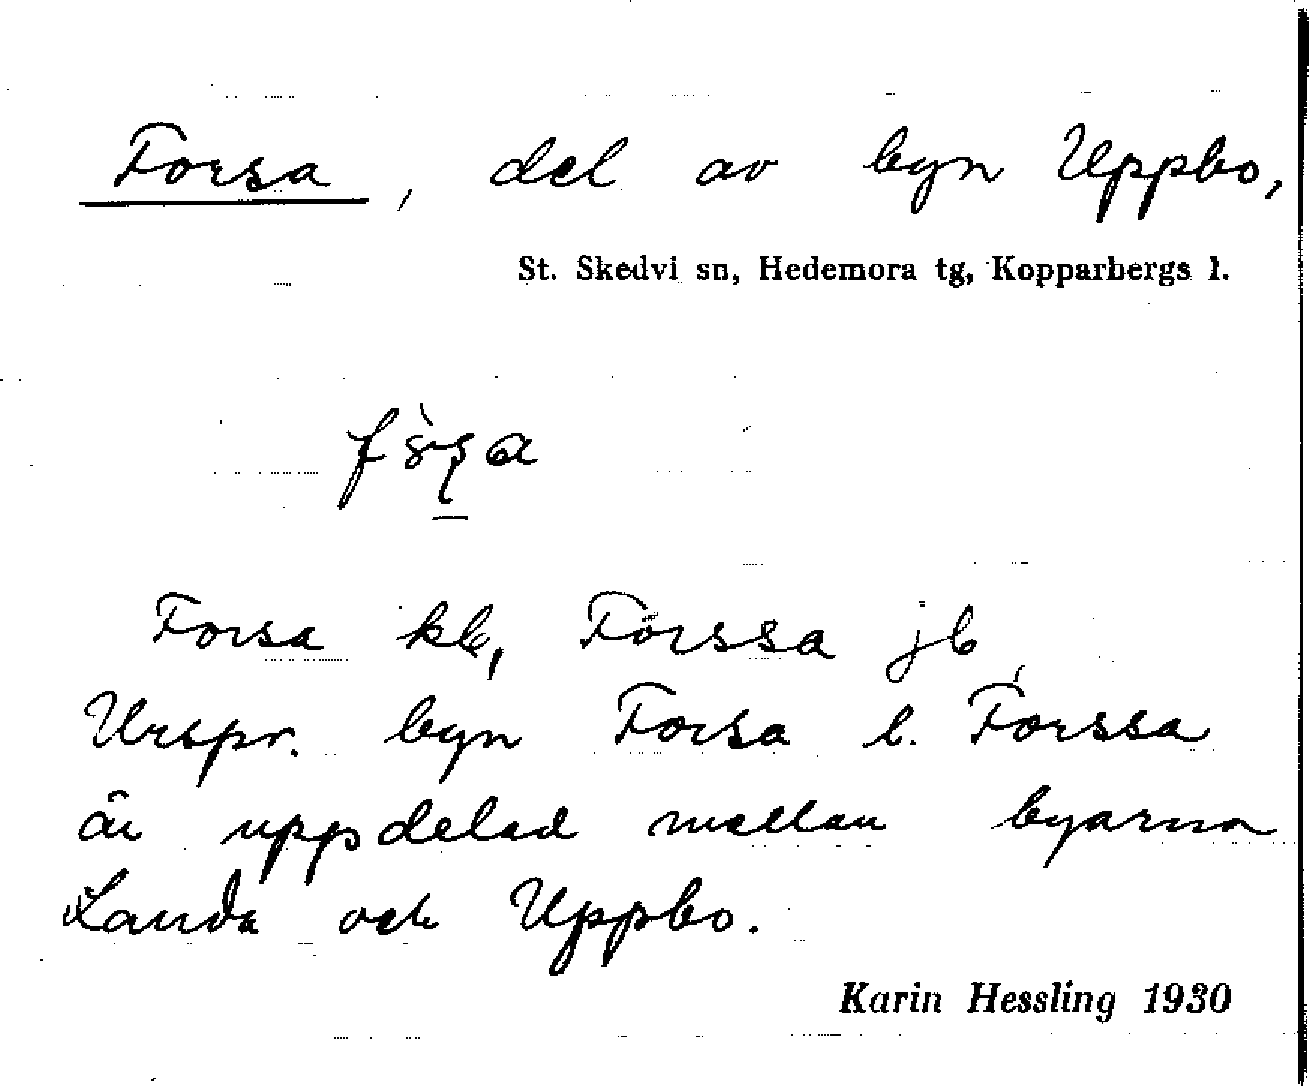 Forsa, del av byn Uppbo,
St. Skedvi sn, Hedemora tg, Kopparbergs l.
Forsa kb, Forssa jb
Urspr. byn Forsa l. Forssa
är uppdelad mellan byarna
Landa och Uppbo.
Karin Hessling 1930